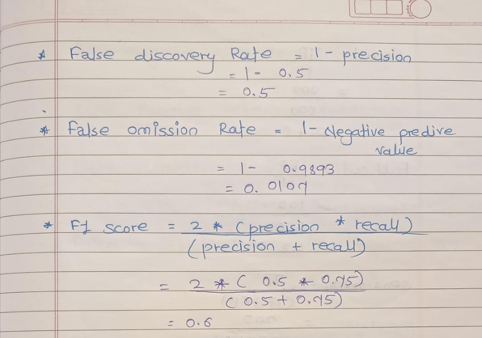 * False discovery Rate = 1 - precision
= 1 - 0.5
= 0.5
* False omission Rate = 1 - Negative predive value
= 1 - 0.9893
= 0.0107
* F1 score = 2 * (precision * recall)
(precision + recall)
= 2 * ( 0.5 * 0.75)
( 0.5 + 0.75)
= 0.6